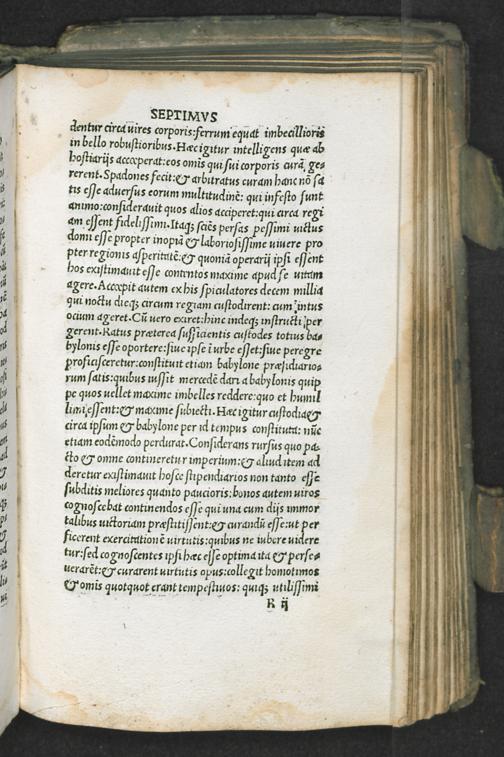 SEPTIMVS
dentur circa uires corporis:ferrum equat imbecilliores
in bello robustioribus.Hæc igitur intelligens quæ ab
hostiarijs acceperat:eos omīs qui sui corporis curā ge-
rerent.Spadones fecit:& arbitratus curam hanc nō sa
tis esse aduersus eorum multitudinē: qui infesto sunt
animo:considerauit quos alios acciperet:qui circa regi
am essent fidelissimi.Itaq; sciēs persas pessimi uictus
domi esse propter inopiā & laboriosissime uiuere pro
pter regionis asperitatē:& quoniā operarij ipsi essent
hos existimauit esse contentos maxime apud se uitam
agere.Accepit autem ex his spiculatores decem millia
qui noctu dieq; circum regiam custodirent: cum intus
ocium ageret.Cū uero exiret:hinc indeq; instructi per
gerent.Ratus præterea sufficientis custodes totius ba-
bylonis esse oportere:siue ipse ī urbe esset:siue peregre
proficisceretur:constituit etiam babylone præsidiario-
rum satis:quibus iussit mercedē dari a babylonis quip
pe quos uellet maxime imbelles reddere:quo et humil
limi essent:& maxime subiecti.Hæc igitur custodia &
circa ipsum & babylone per id tempus constituta: nūc
etiam eodē modo perdurat.Considerans rursus quo pa-
cto & omne contineretur imperium:& aliud item ad
deretur existimauit hosce stipendiarios non tanto esse
subditis meliores quanto pauciores:bonos autem uiros
cognoscebat continendos esse qui una cum dijs immor
talibus uictoriam præstitissent:& curandū esse:ut per
ficerent exercitationē uirtutis:quibus ne iubere uidere
tur:sed cognoscentes ipsi hæc esse optima ita & perse-
uerarēt:& curarent uirtutis opus:collegit homotimos
& omīs quotquot erant tempestiuos: quiq; utilissimi
R ij